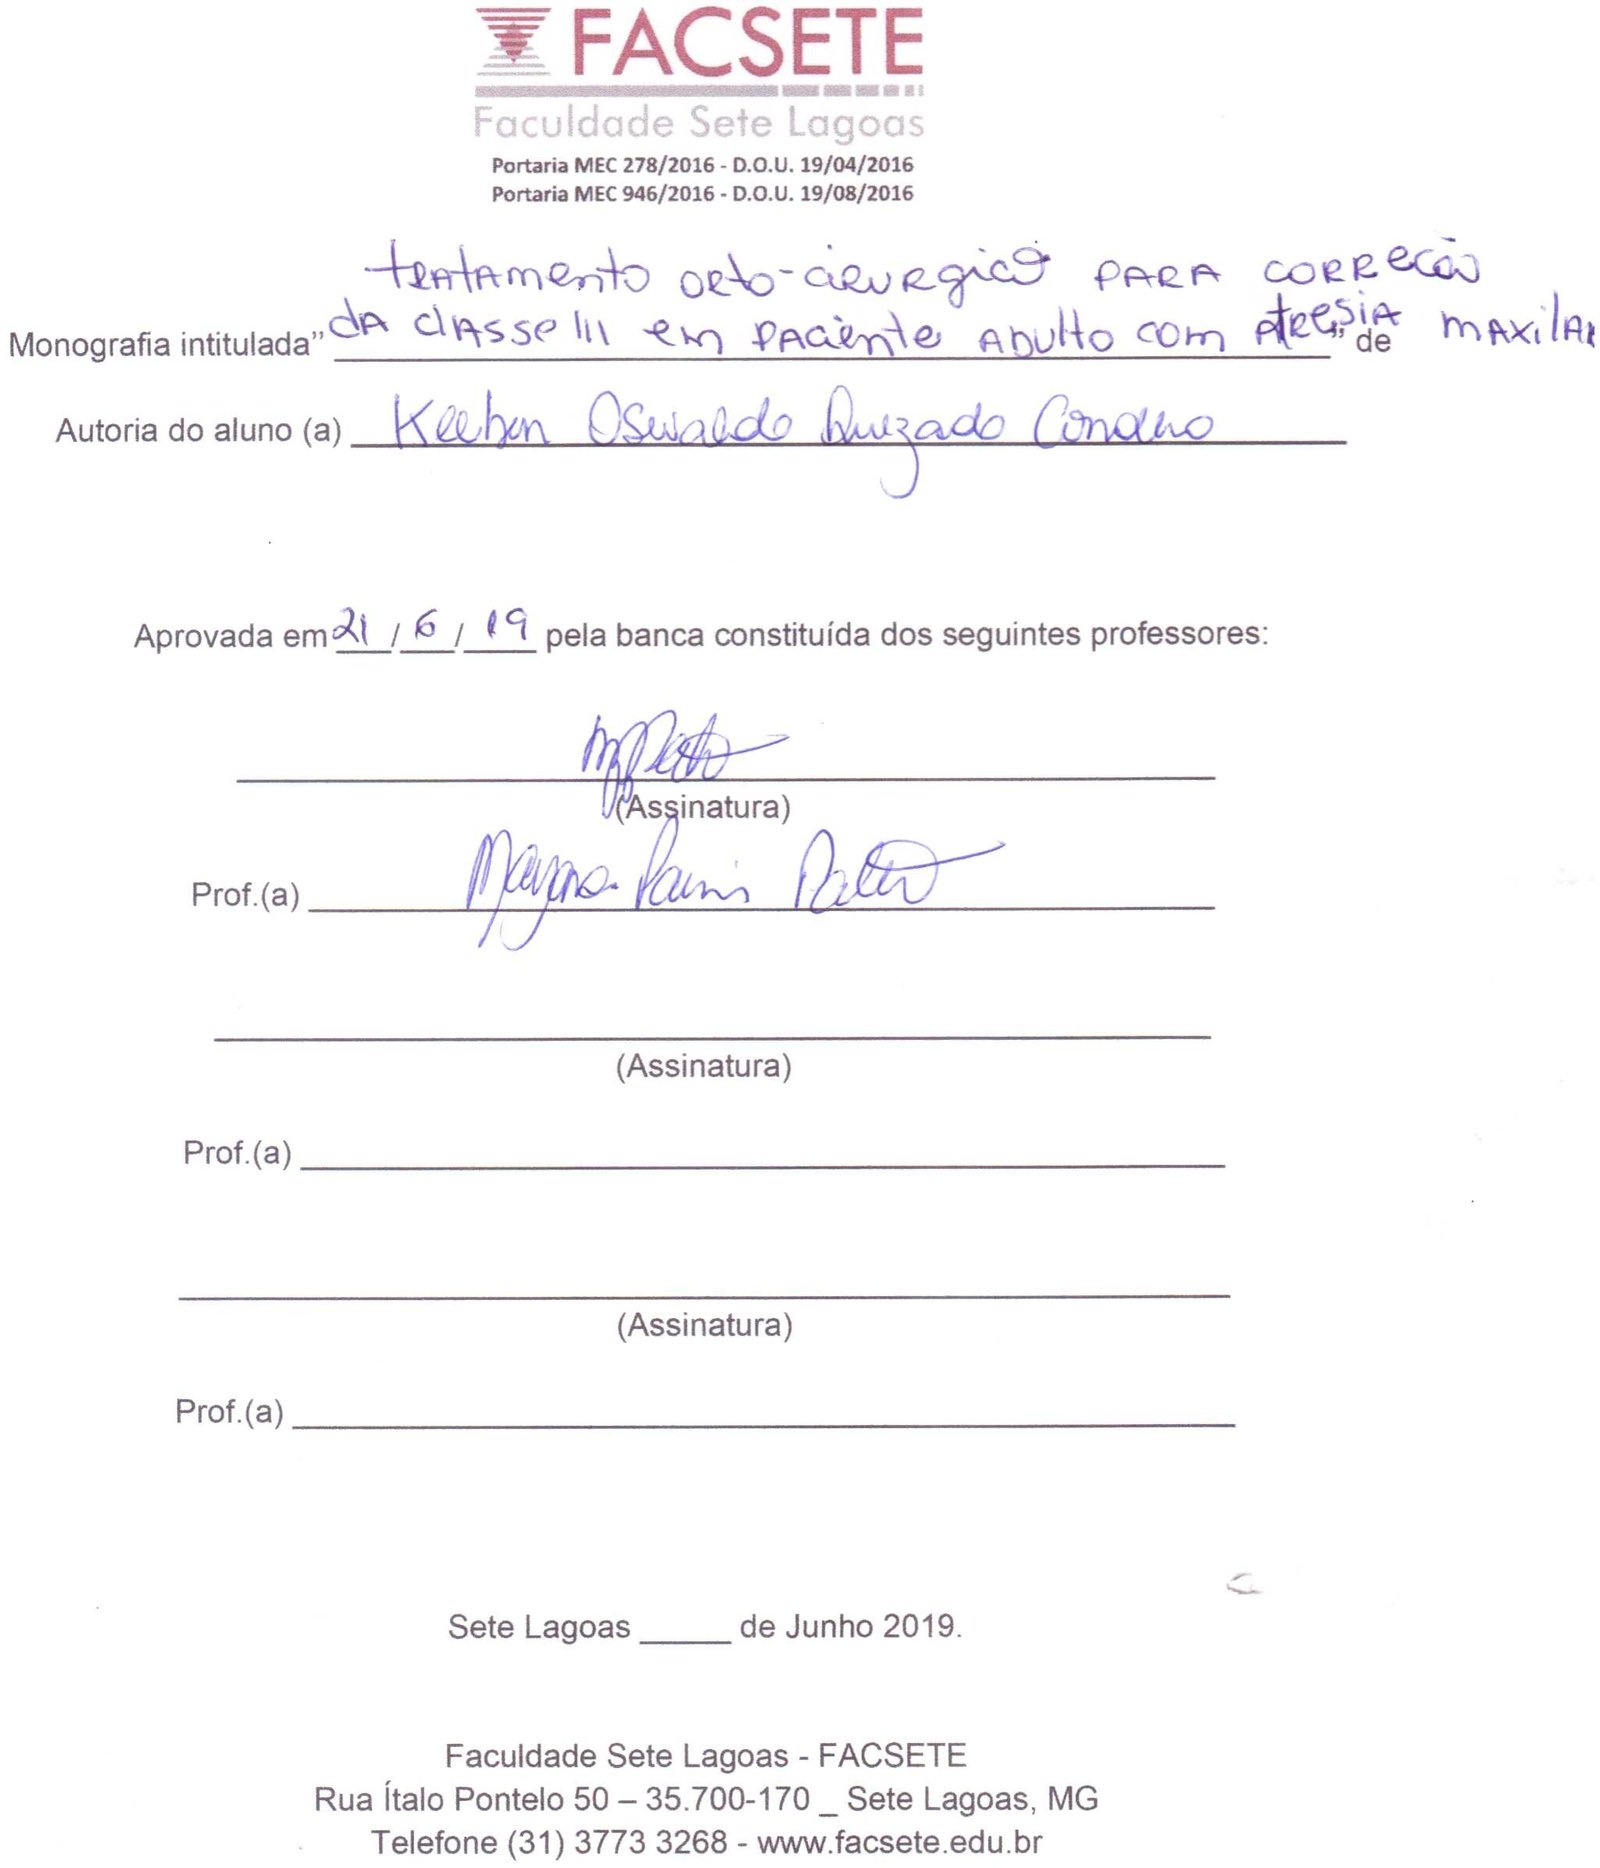 FACSETE
Faculdade Sete Lagoas
Portaria MEC 278/2016 - D.O.U. 19/04/2016
Portaria MEC 946/2016 - D.O.U. 19/08/2016
tratamento orto-cirurgico para correção
Monografia intitulada" da classe III em paciente adulto com atresia maxilar " de
Autoria do aluno (a) Oswaldo
Aprovada em 21 / 6 / 19 pela banca constituída dos seguintes professores:
(Assinatura)
Prof.(a)
(Assinatura)
Prof.(a)
(Assinatura)
Prof.(a)
Sete Lagoas _____ de Junho 2019.
Faculdade Sete Lagoas - FACSETE
Rua Ítalo Pontelo 50 – 35.700-170 _ Sete Lagoas, MG
Telefone (31) 3773 3268 - www.facsete.edu.br